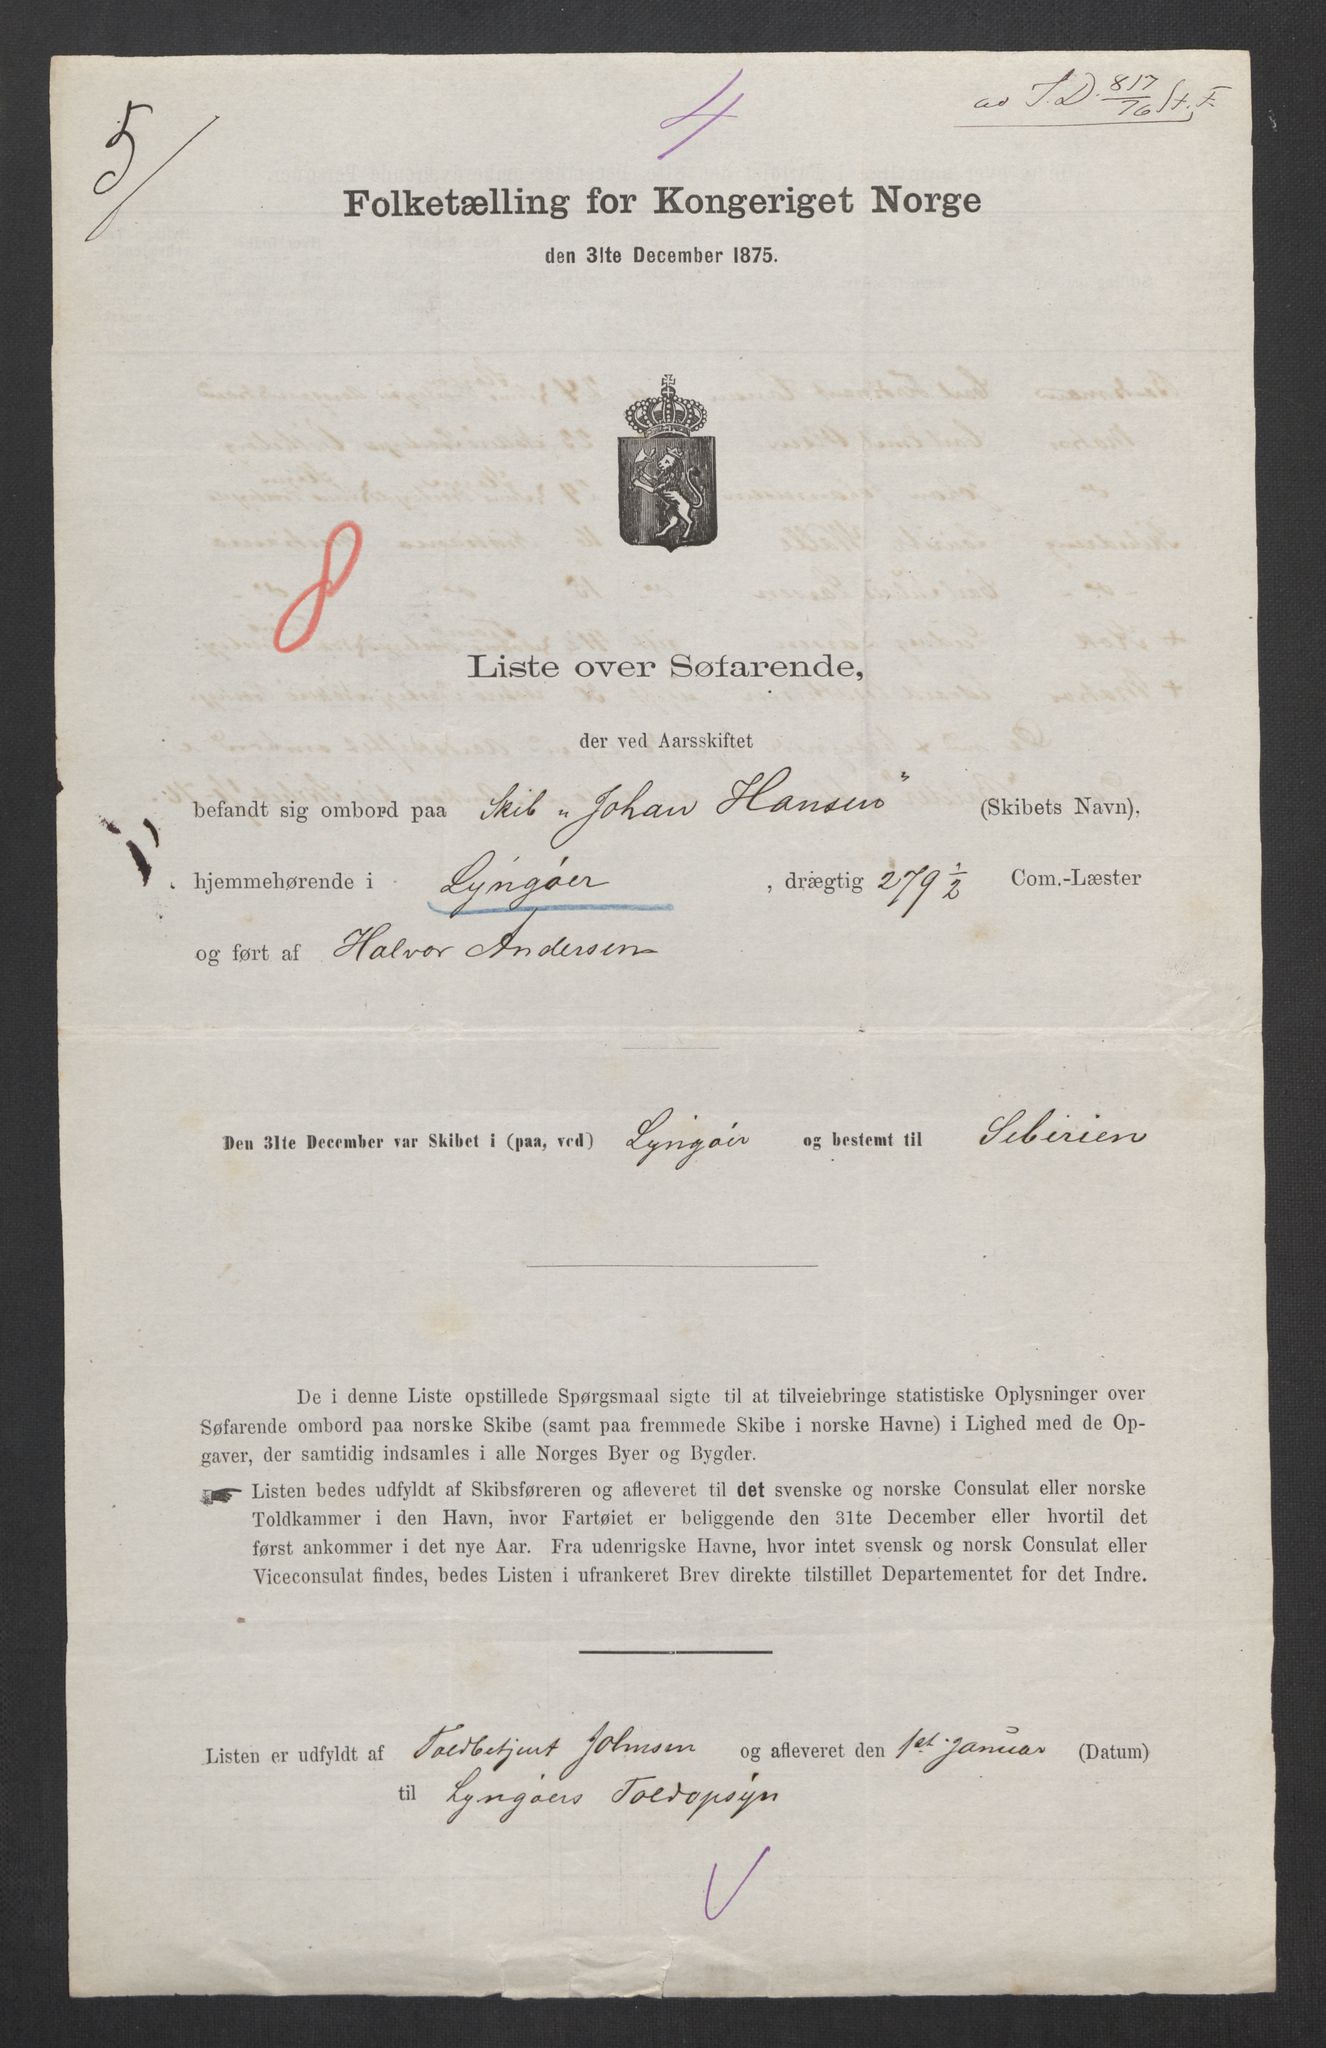 5/
4
ad I.D. 817/76 St. F.
Folketælling for Kongeriget Norge
den 31te December 1875.
8
Liste over Søfarende,
der ved Aarsskiftet
befandt sig ombord paa Skib „Johan Hansen” (Skibets Navn),
hjemmehørende i Lyngøer, drægtig 279 1/2 Com.-Læster
og ført af Halvor Andersen
Den 31te December var Skibet i (paa, ved) Lyngøer og bestemt til Sibirien
De i denne Liste opstillede Spørgsmaal sigte til at tilveiebringe statistiske Oplysninger over
Søfarende ombord paa norske Skibe (samt paa fremmede Skibe i norske Havne) i Lighed med de Op-
gaver, der samtidig indsamles i alle Norges Byer og Bygder.
Listen bedes udfyldt af Skibsføreren og afleveret til det svenske og norske Consulat eller norske
Toldkammer i den Havn, hvor Fartøiet er beliggende den 31te December eller hvortil det
først ankommer i det nye Aar. Fra udenrigske Havne, hvor intet svensk og norsk Consulat eller
Viceconsulat findes, bedes Listen i ufrankeret Brev direkte tilstillet Departementet for det Indre.
Listen er udfyldt af Toldbetjent Johnsen og afleveret den 1st Januar (Datum)
til Lyngøers Toldopsyn